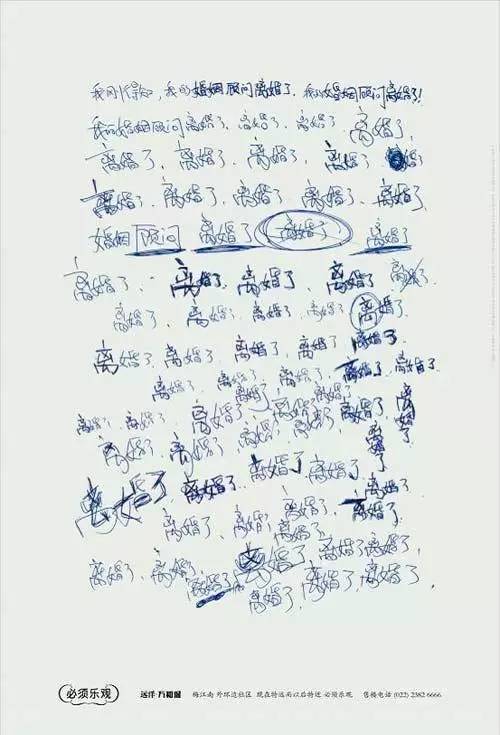 我刚得知，我的婚姻顾问离婚了，我的婚姻顾问离婚了！
我的婚姻顾问离婚了、离婚了、离婚了、离婚了、
离婚了、离婚了、离婚了、离婚了、婚
离婚了、离婚了、离婚了、离婚了、离婚了、
婚姻顾问 离婚了 离婚了 离婚了
离婚了、离婚了、离婚了、离婚了、离婚了
离婚了、离婚了、离婚了、离婚了、离婚了
离婚了、离婚了、离婚了、离婚了、离婚了
离婚了、离婚了、离婚了、离婚了、离婚了
离婚了、离婚了、离婚了、离婚了、离婚了、离婚了
离婚了、离婚了、离婚了、离婚了、离婚了
离婚了 离婚了、离婚了、离婚了、离婚了
离婚了、离婚了、离婚了、离婚了
离婚了、离婚了、离婚了、离婚了、离婚了、
离婚了、离婚了、离婚了、离婚了、
必须乐观 远洋·万和城 梅江南 外环边社区 现在特远而以后特近 必须乐观 售楼电话 (022) 2382 6666